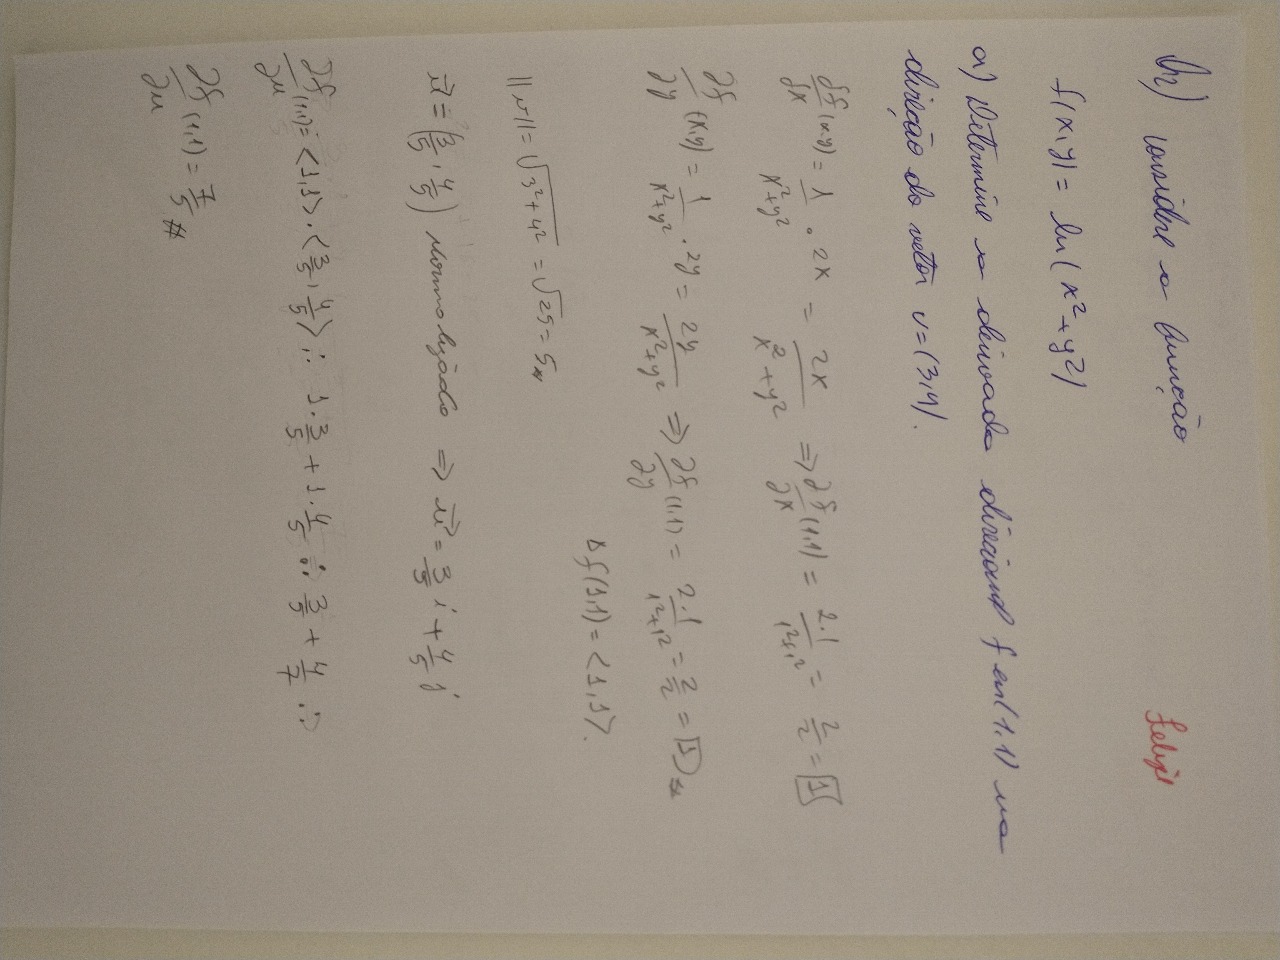 2) considere a função
Felipe
f(x,y) = ln(x²+y²)
a) Determine a derivada direcional f em (1,1) na
direção do vetor v=(3,4).
∂f/∂x (x,y) = 1/(x²+y²) · 2x = 2x/(x²+y²) ⇒ ∂f/∂x (1,1) = 2.1/(1²+1²) = 2/2 = 1
∂f/∂y (x,y) = 1/(x²+y²) · 2y = 2y/(x²+y²) ⇒ ∂f/∂y (1,1) = 2.1/(1²+1²) = 2/2 = 1
Δf(1,1) = <1,1>.
||v|| = √(3²+4²) = √25 = 5
u⃗ = (3/5, 4/5) normalizado ⇒ u⃗ = 3/5 i + 4/5 j
∂f/∂u (1,1) = <1,1> · <3/5, 4/5> ∴ 1·3/5 + 1·4/5 ∴ 3/5 + 4/7 ∴
∂f/∂u (1,1) = 7/5 #